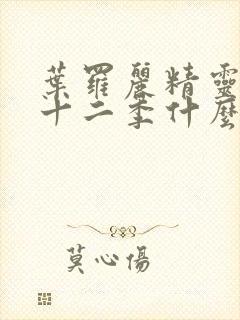 葉羅麗精靈
十二季什麼
莫心傷